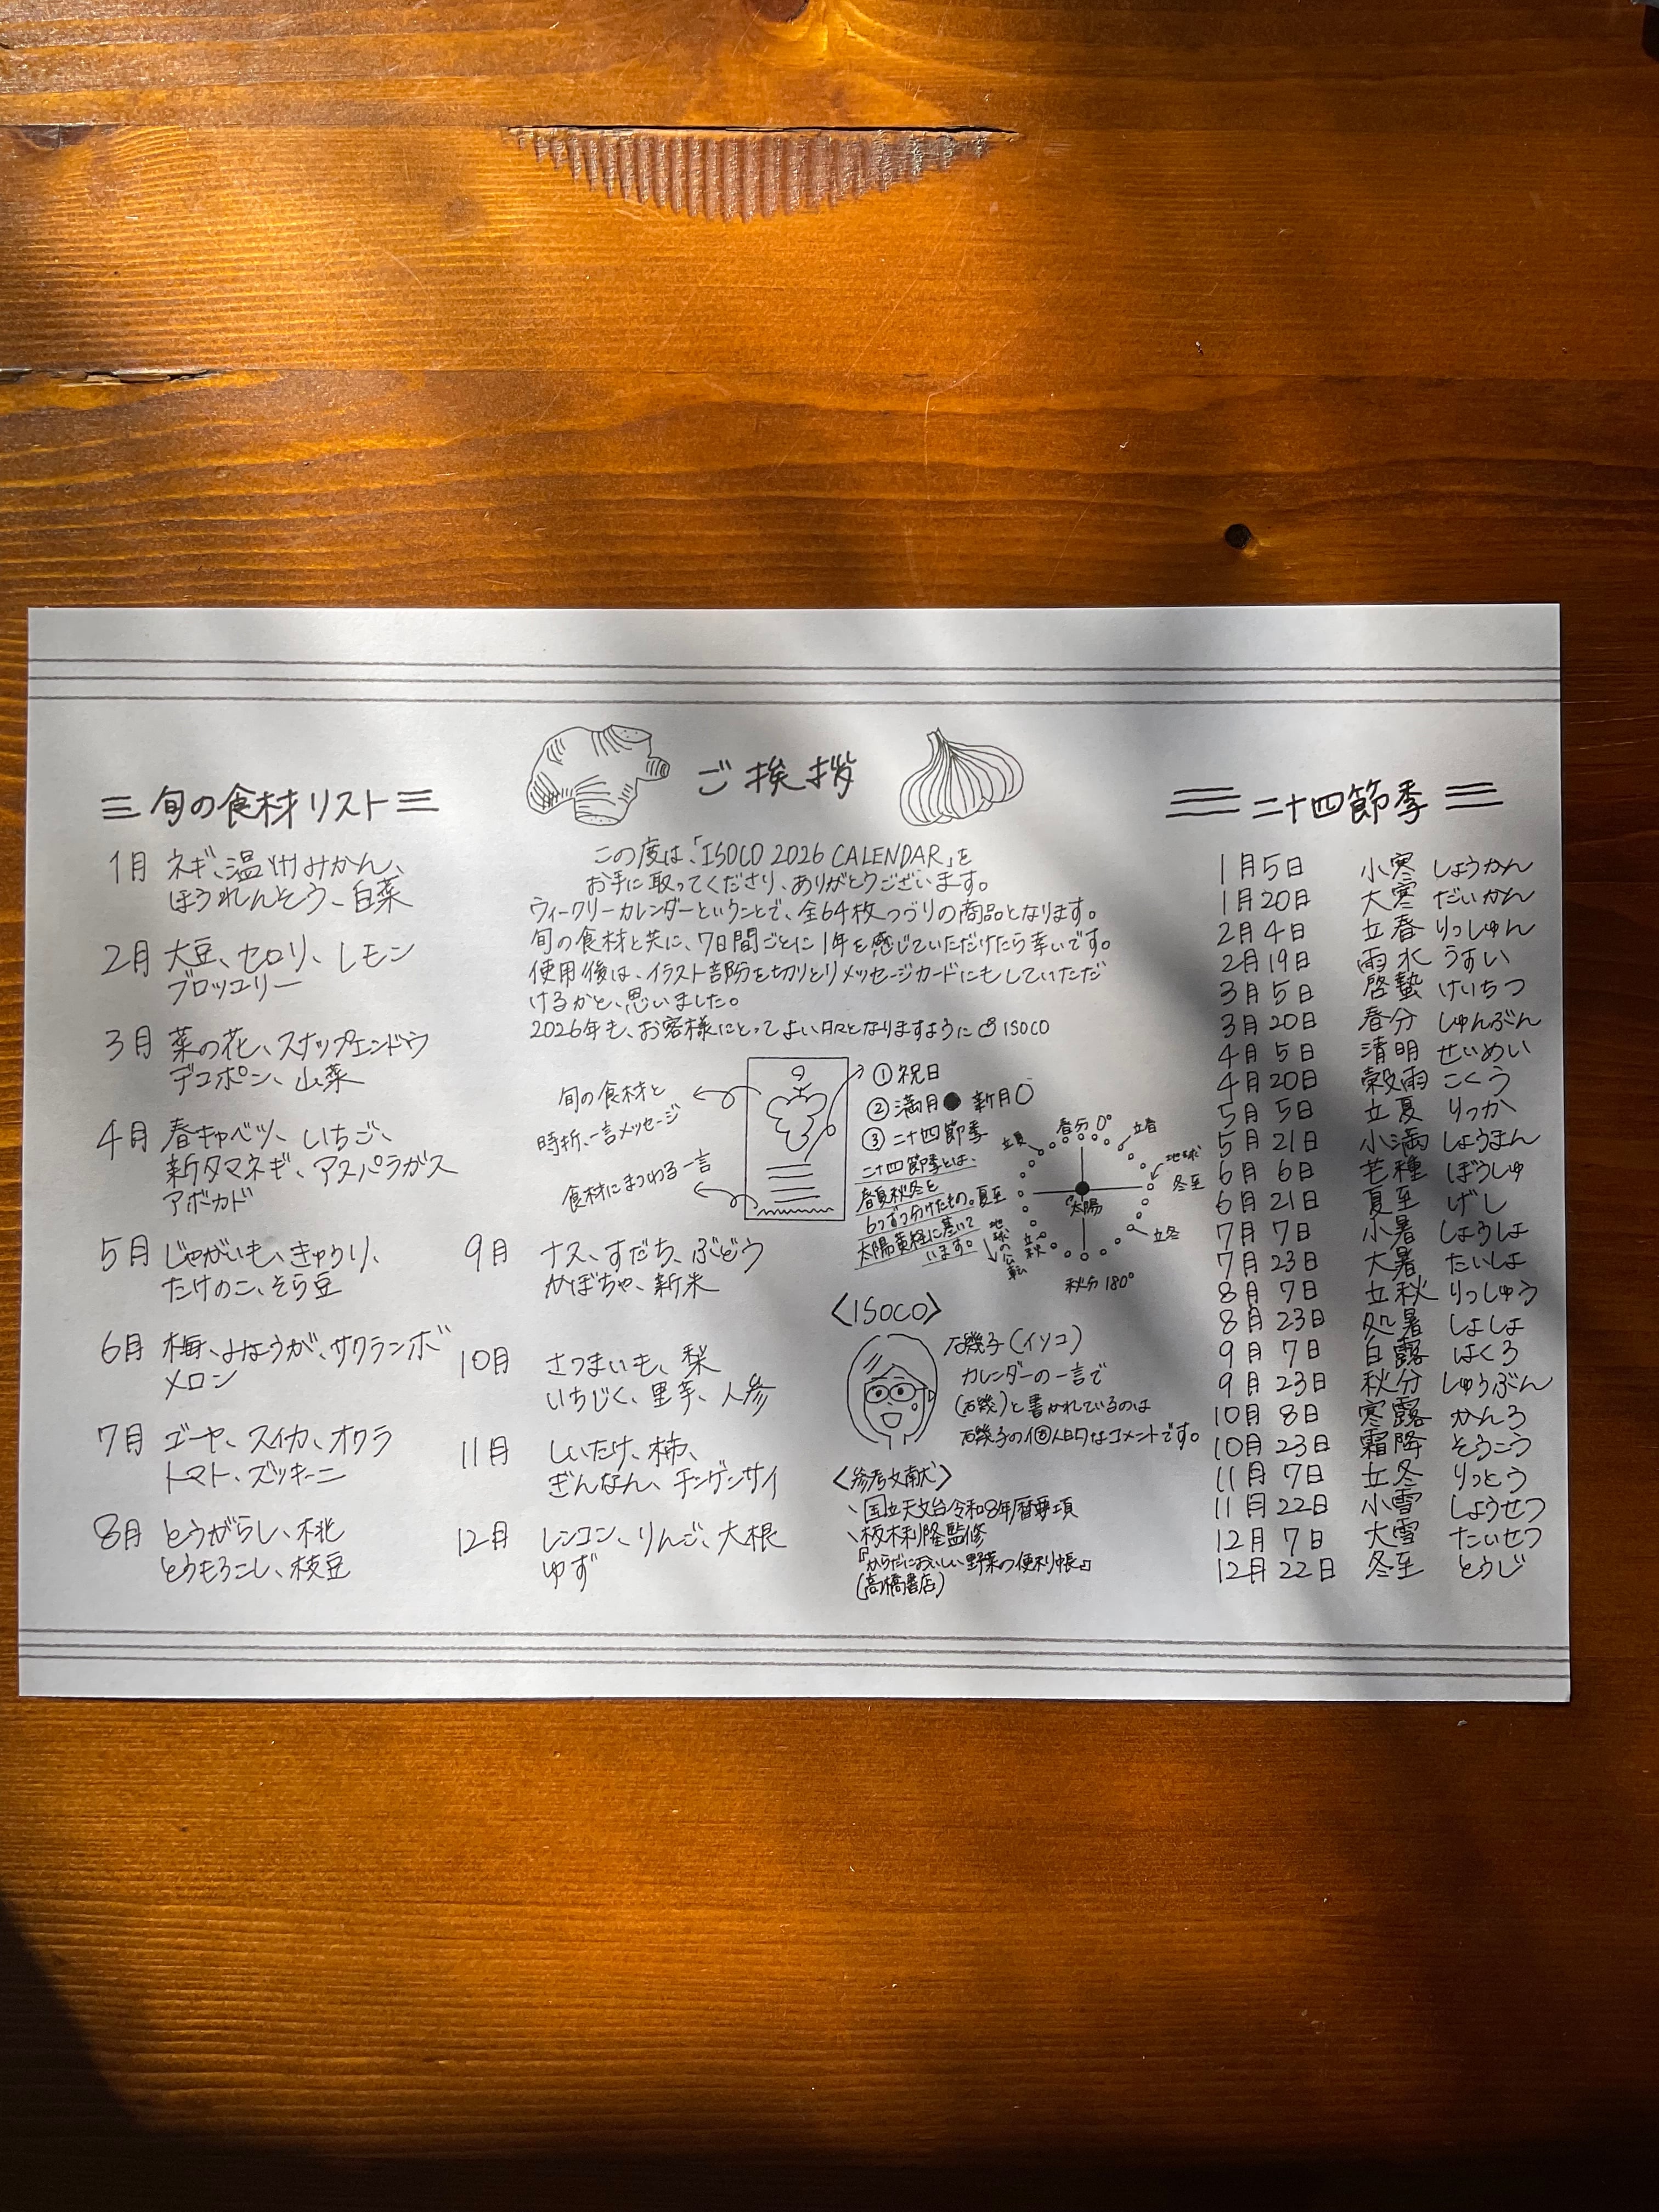 旬の食材リスト
1月 ネギ、温州みかん、
ほうれんそう、白菜
2月 大豆、セロリ、レモン
ブロッコリー
3月 菜の花、スナップエンドウ
デコポン、山菜
4月 春キャベツ、いちご、
新タマネギ、アスパラガス
アボカド
5月 じゃがいも、きゅうり、
たけのこ、そら豆
6月 梅、みょうが、サクランボ
メロン
7月 ゴーヤ、スイカ、オクラ
トマト、ズッキーニ
8月 とうがらし、桃
とうもろこし、枝豆
9月 ナス、すだち、ぶどう
かぼちゃ、新米
10月 さつまいも、梨
いちじく、里芋、人参
11月 しいたけ、柿、
ぎんなん、チンゲンサイ
12月 レンコン、りんご、大根
ゆず
ご挨拶
この度は、「ISOCO 2026 CALENDAR」を
お手に取ってくださり、ありがとうございます。
ウィークリーカレンダーということで、全64枚つづりの商品となります。
旬の食材と共に、7日間ごとに1年を感じていただけたら幸いです。
使用後は、イラスト部分を切りとりメッセージカードにもしていただ
けるかと、思いました。
2026年も、お客様にとってよい日々となりますように ISOCO
旬の食材と
時折、一言メッセージ
食材にまつわる一言
①祝日
②満月● 新月○
③二十四節季
二十四節季とは、
春夏秋冬を
6つずつ分けたもの。
太陽黄経に基いて
います。
春分 0°
立春
地球
冬至
立冬
秋分 180°
立秋
夏至
立夏
太陽
地球の公転
〈ISOCO〉
石磯子（イソコ）
カレンダーの一言で
（石磯）と書かれているのは
石磯子の個人的なコメントです。
〈参考文献〉
、国立天文台令和8年暦要項
、板木利隆監修
『からだにおいしい野菜の便利帳』
（高橋書店）
二十四節季
1月5日 小寒 しょうかん
1月20日 大寒 だいかん
2月4日 立春 りっしゅん
2月19日 雨水 うすい
3月5日 啓蟄 けいちつ
3月20日 春分 しゅんぶん
4月5日 清明 せいめい
4月20日 穀雨 こくう
5月5日 立夏 りっか
5月21日 小満 しょうまん
6月6日 芒種 ぼうしゅ
6月21日 夏至 げし
7月7日 小暑 しょうしょ
7月23日 大暑 たいしょ
8月7日 立秋 りっしゅう
8月23日 処暑 しょしょ
9月7日 白露 はくろ
9月23日 秋分 しゅうぶん
10月8日 寒露 かんろ
10月23日 霜降 そうこう
11月7日 立冬 りっとう
11月22日 小雪 しょうせつ
12月7日 大雪 たいせつ
12月22日 冬至 とうじ